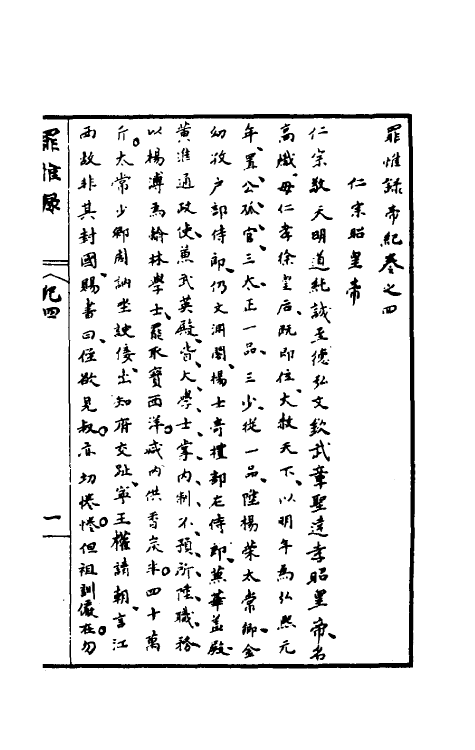 罪惟錄帝紀卷之四
仁宗昭皇帝
仁宗敬天明道純誠至德弘文欽武章聖達孝昭皇帝名
高熾母仁孝徐皇后既即位大赦天下以明年為弘熙元
年置公孤官三太正一品三少從一品陞楊榮太常卿金
幼孜戶部侍郎仍文淵閣楊士奇禮部左侍郎兼華蓋殿
黃淮通政使兼武英殿皆大學士掌內制不預所陞職務
以楊溥為翰林學士罷采寶西洋減內供香炭半四十萬
斤太常少卿周訥坐諛佞出知府交趾寧王權請朝言江
西故非其封國賜書曰侄欲見叔亦切惓惓但祖訓儼在勿
罪惟錄
紀四
一